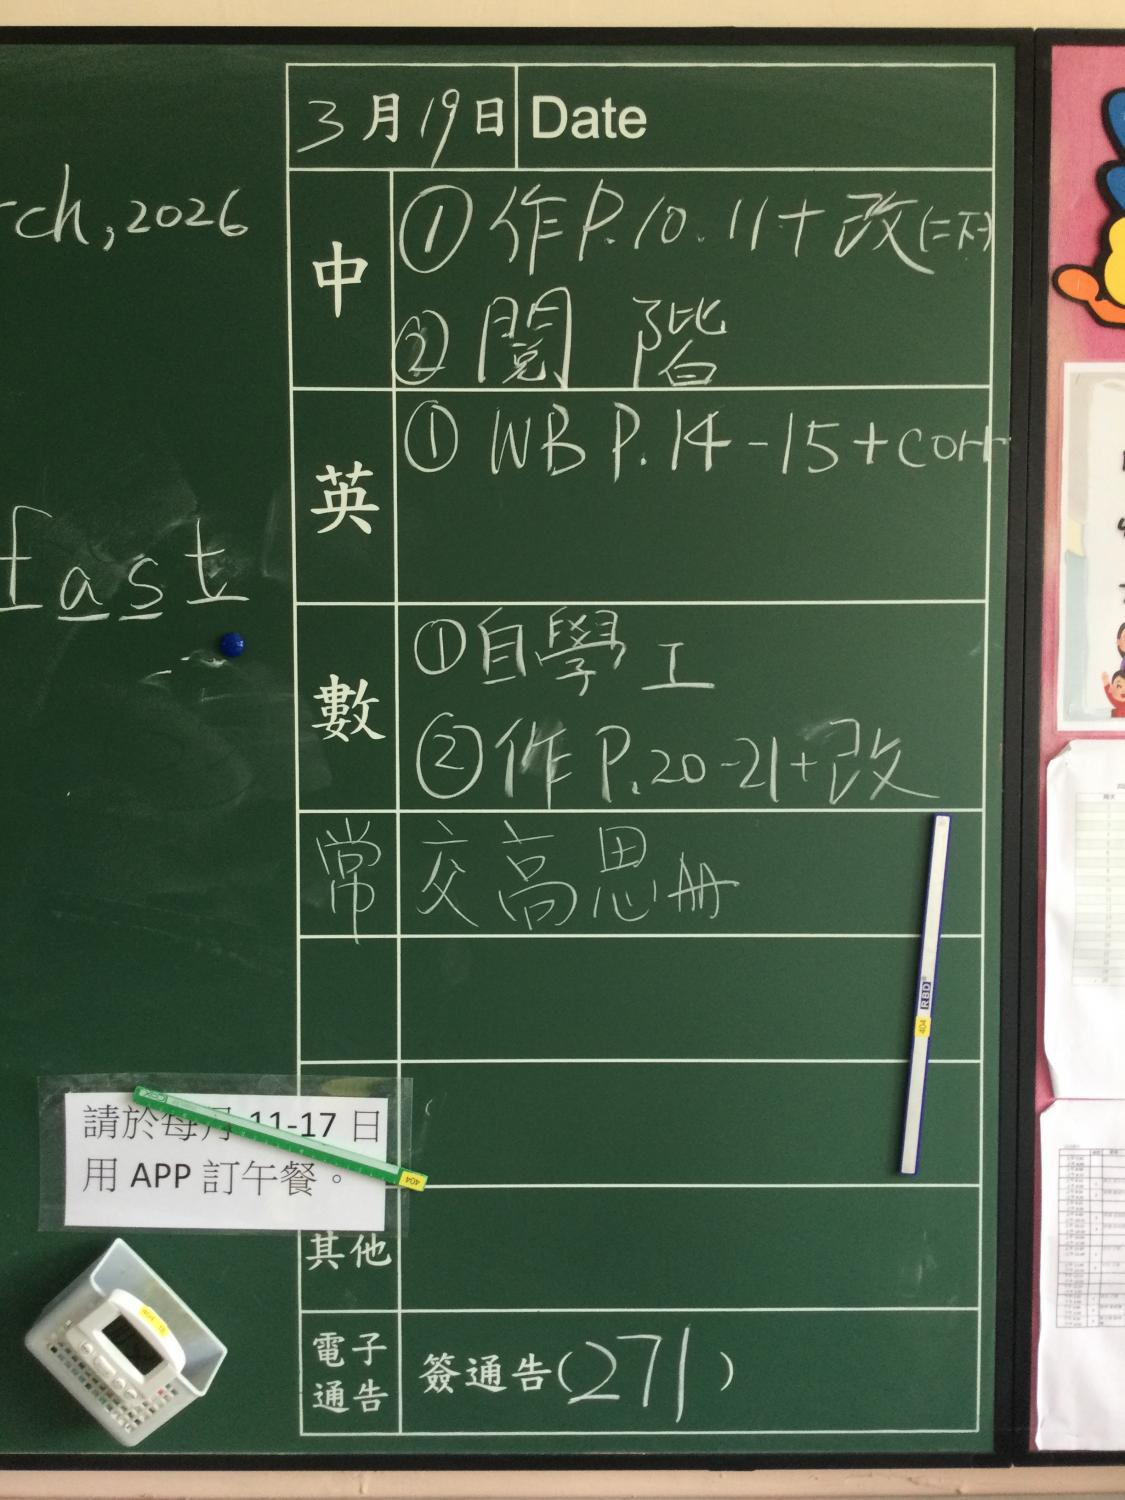 3月19日 Date
rch, 2026
中
① 作P.10.11+改(二下)
② 閱 階
英
① WB P.14-15+corr
fast
數
① 自學工
② 作P.20-21+改
常 交高思冊
RBD
404
請於每月 11-17 日
用 APP 訂午餐。
404
其他
電子
通告
簽通告(271)